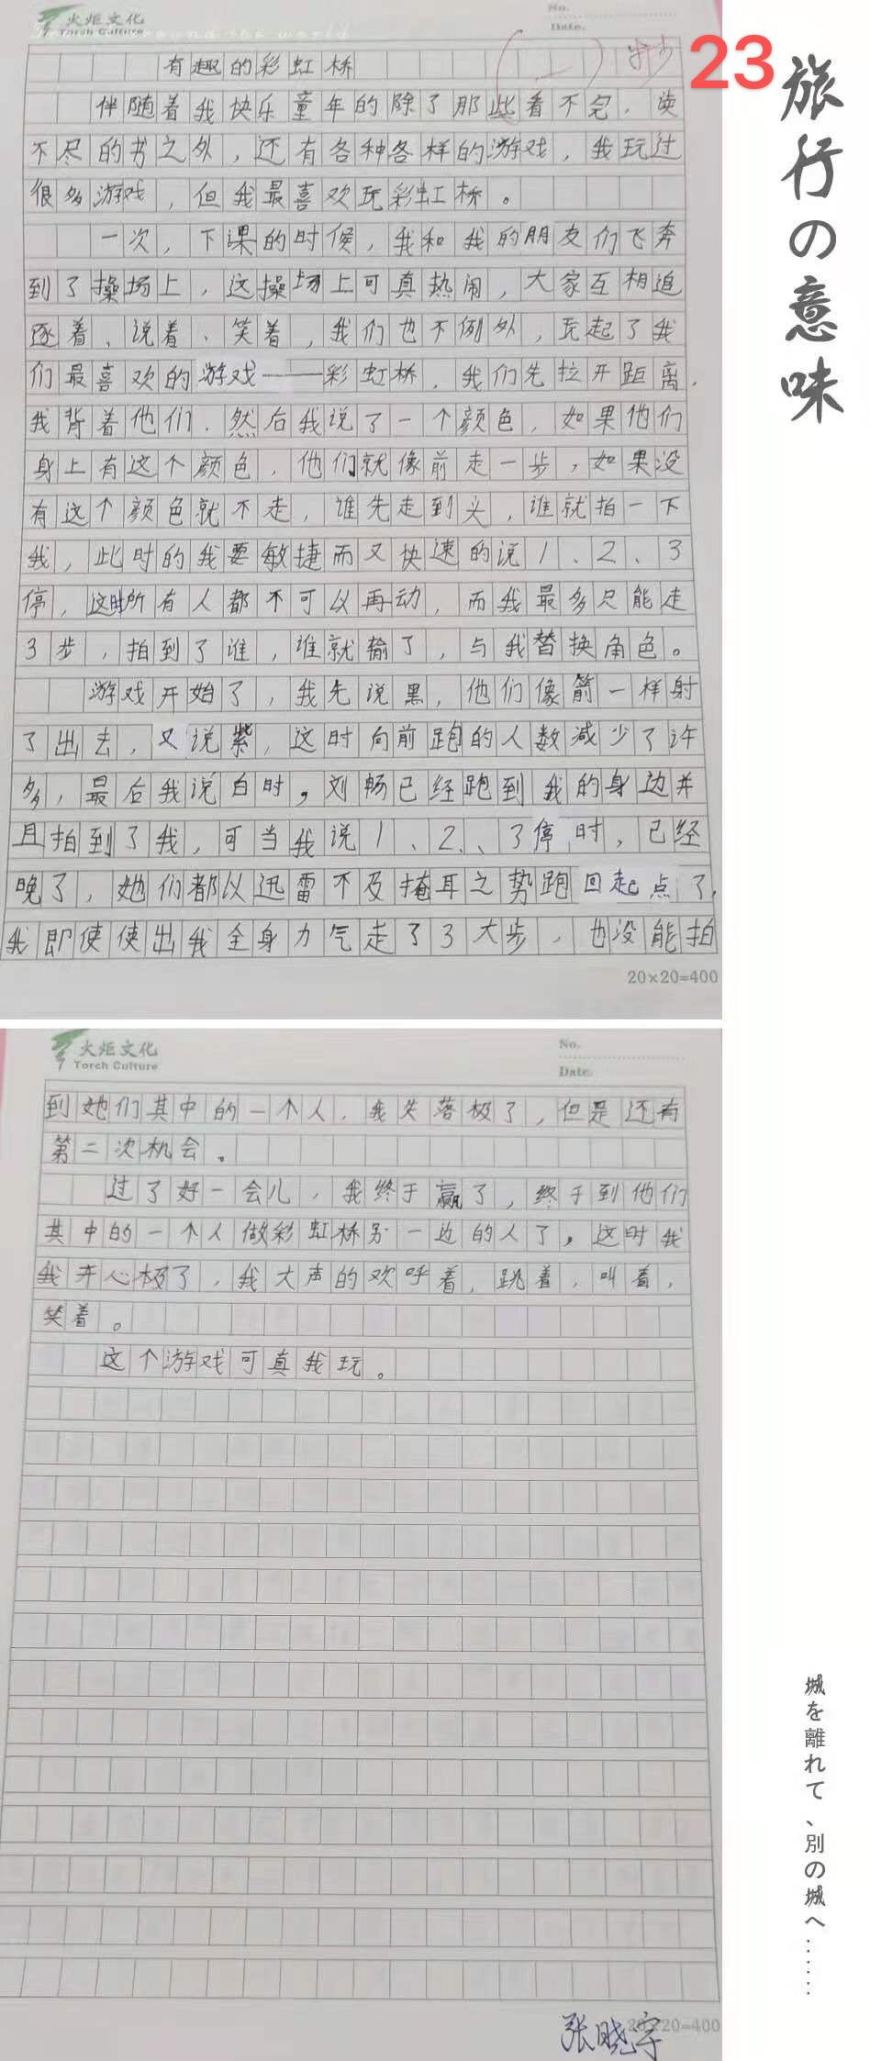 火炬文化
Torch Culture
No.
Date.
23
有趣的彩虹桥
伴随着我快乐童年的除了那些看不完,读
不尽的书之外,还有各种各样的游戏,我玩过
很多游戏,但我最喜欢玩彩虹桥。
一次,下课的时候,我和我的朋友们飞奔
到了操场上,这操场上可真热闹,大家互相追
逐着、说着、笑着,我们也不例外,玩起了我
们最喜欢的游戏——彩虹桥,我们先拉开距离,
我背着他们,然后我说了一个颜色,如果他们
身上有这个颜色,他们就像前走一步,如果没
有这个颜色就不走,谁先走到头,谁就拍一下
我,此时的我要敏捷而又快速的说1、2、3
停,这时所有人都不可以再动,而我最多只能走
3步,拍到了谁,谁就输了,与我替换角色。
游戏开始了,我先说黑,他们像箭一样射
了出去,又说紫,这时向前跑的人数减少了许
多,最后我说白时,刘畅已经跑到我的身边并
且拍到了我,可当我说1、2、3停时,已经
晚了,她们都以迅雷不及掩耳之势跑回起点了,
我即使使出我全身力气走了3大步,也没能拍
20×20=400
火炬文化
Torch Culture
No.
Date.
到她们其中的一个人,我失落极了,但是还有
第二次机会。
过了好一会儿,我终于赢了,终于到他们
其中的一个人做彩虹桥另一边的人了,这时我
我开心极了,我大声的欢呼着,跳着,叫着,
笑着。
这个游戏可真我玩。
20×20=400
张晓宇
旅行の意味
城を離れて、別の城へ……